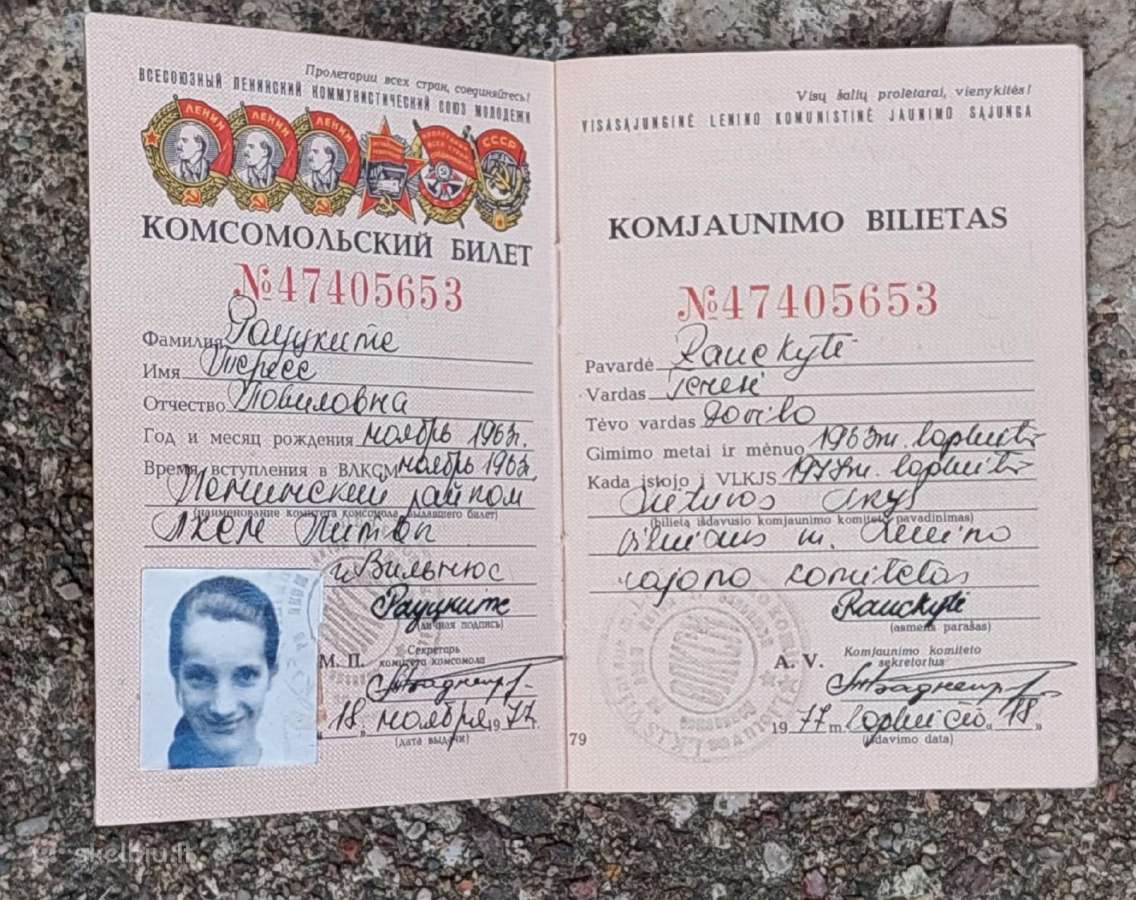 Пролетарии всех стран, соединяйтесь!
ВСЕСОЮЗНЫЙ ЛЕНИНСКИЙ КОММУНИСТИЧЕСКИЙ СОЮЗ МОЛОДЕЖИ
ЛЕНИН ЛЕНИН ЛЕНИН СССР
КОМСОМОЛЬСКИЙ БИЛЕТ
№47405653
Фамилия Рауцките
Имя Тересе
Отчество Повиловна
Год и месяц рождения ноябрь 1963г.
Время вступления в ВЛКСМ ноябрь 1963г.
Ленинский райком
(наименование комитета комсомола, выдавшего билет)
ЛКСМ Литвы
г. Вильнюс
Рауцките
(личная подпись)
М. П.
Секретарь
комитета комсомола
"18" ноября 1977г.
(дата выдачи)
Visų šalių proletarai, vienykitės!
VISASĄJUNGINĖ LENINO KOMUNISTINĖ JAUNIMO SĄJUNGA
KOMJAUNIMO BILIETAS
№47405653
Pavardė Rauckytė
Vardas Teresė
Tėvo vardas Povilo
Gimimo metai ir mėnuo 1963m. lapkritis
Kada įstojo į VLKJS 1977m. lapkritis
Lietuvos LKJS
(bilietą išdavusio komjaunimo komiteto pavadinimas)
Vilniaus m. Lenino
rajono komitetas
Rauckytė
(asmens parašas)
A. V.
Komjaunimo komiteto
sekretorius
1977 m. lapkričio „18"
(išdavimo data)
79
skelbiu.lt